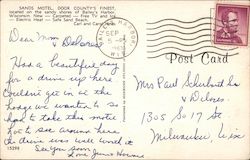 SANDS MOTEL, DOOR COUNTY'S FINEST,
located on the sandy shores of Bailey's Harbor,
Wisconsin. New — Carpeted — Free TV and
Electric Heat — Safe Sand Beach.
Earl and Carol
BAILEYS HARBOR
SEP
WIS.
Post Card
Dear Mom & Delores
Had a beautiful day
for a drive up here
Couldn't get in at the
lodge we wanted to so
had to take this motel
lot to see around here
The drive was well worth it
See you soon,
Love June Howard
Mrs Paul Scherbarth
& Delores
1305 So 17 St
Milwaukee, Wisc
15298